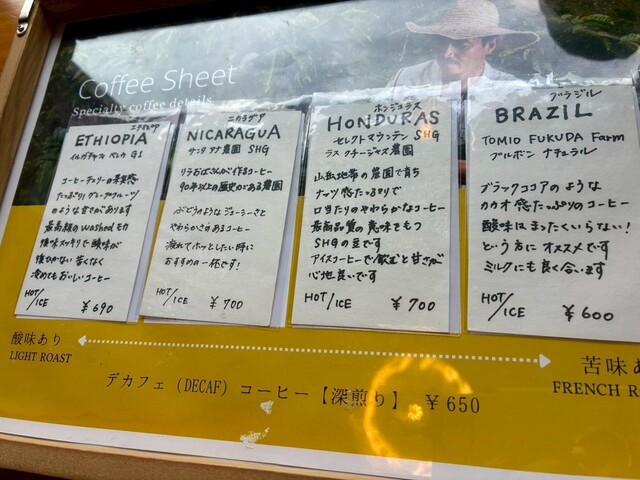 Coffee Sheet
Specialty coffee details
エチオピア
ETHIOPIA
イルガチャフェ ベレカ G1
コーヒーチェリーの果実感
たっぷり! グレープフルーツ
のような甘さがあります
最高級のwashed モカ
後味スッキリで酸味が
後ひかない 苦くなく
冷めてもおいしいコーヒー
HOT/ICE ¥690
ニカラグア
NICARAGUA
サンタ アナ 農園 SHG
リラおばさんがご作るコーヒー
90年以上の歴史がある農園
ぶどうのような ジューシーさと
やわらかさのあるコーヒー
疲れてホッとしたい時に
おすすめの一杯です!
HOT/ICE ¥700
ホンジュラス
HONDURAS
セレクトマウンテン SHG
ラス クチージャス農園
山岳地帯の農園で育ち
ナッツ感たっぷりで
口当たりのやわらかなコーヒー
最高品質の意味をもつ
SHGの豆です
アイスコーヒーで飲むと甘さが
心地良いです
HOT/ICE ¥700
ブラジル
BRAZIL
TOMIO FUKUDA Farm
ブルボン ナチュラル
ブラックココアのような
カカオ感たっぷりのコーヒー
酸味はまったくいらない!
という方にオススメです
ミルクにも良く合います
HOT/ICE ¥600
酸味あり
LIGHT ROAST
苦味あ
FRENCH R
デカフェ (DECAF) コーヒー【深煎り】 ¥650